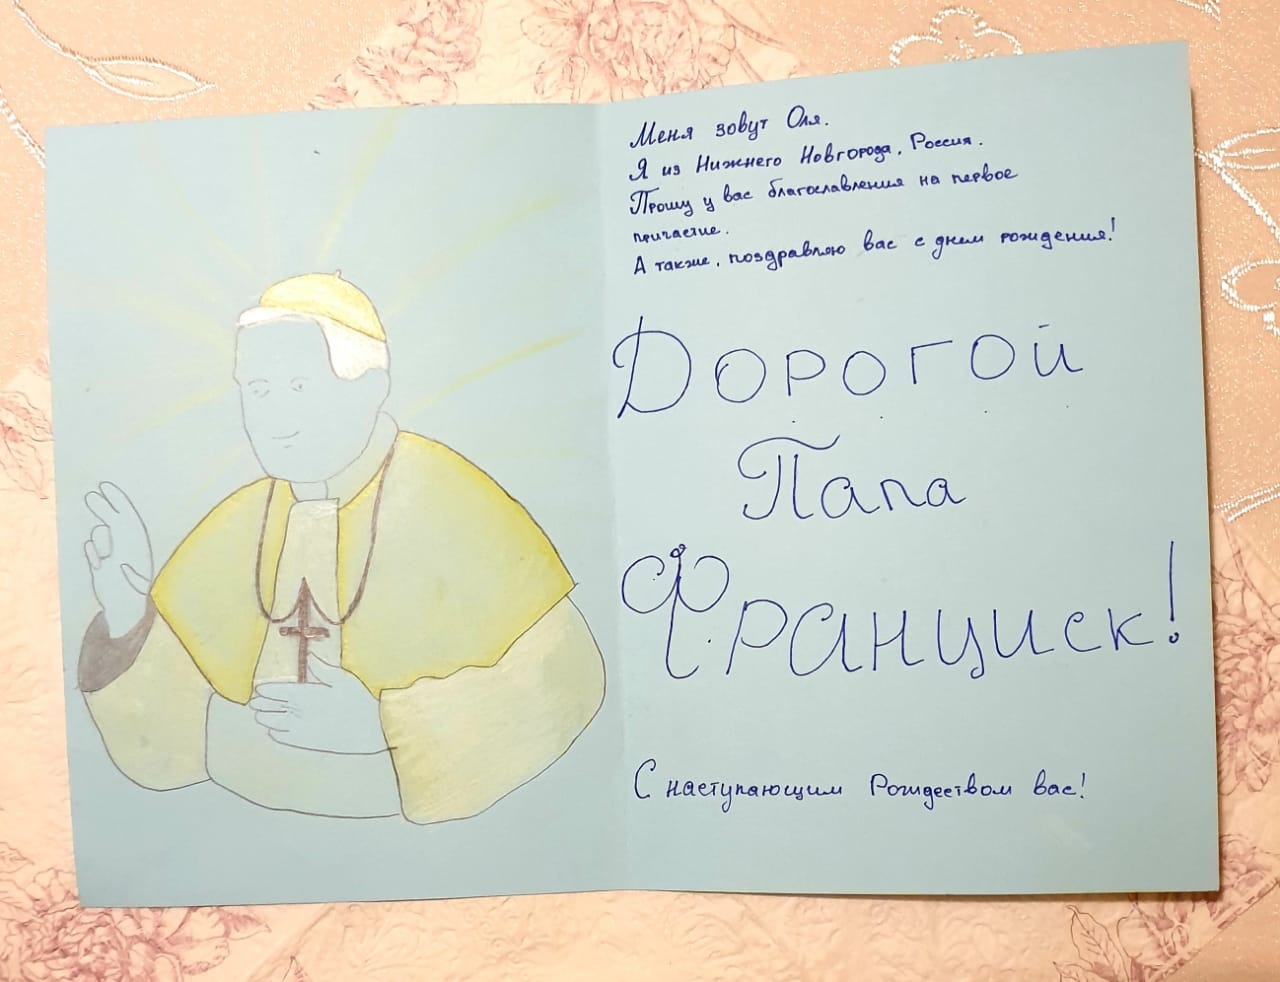 Меня зовут Оля.
Я из Нижнего Новгорода, Россия.
Прошу у вас благославления на первое
причастие.
А также, поздравляю вас с днем рождения!
Дорогой
Папа
Франциск!
С наступающим Рождеством вас!